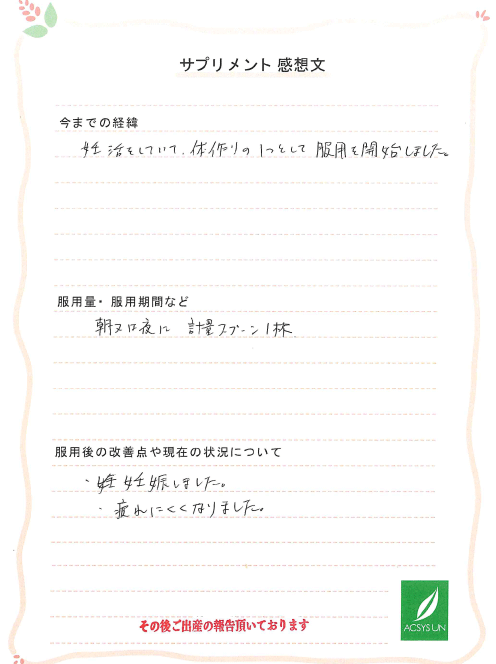 サプリメント 感想文
今までの経緯
妊活をしていて、体作りの1つとして 服用を開始しました。
服用量・服用期間など
朝又は夜に 計量スプーン1杯
服用後の改善点や現在の状況について
・妊娠しました。
・疲れにくくなりました。
その後ご出産の報告頂いております
ACSYSUN